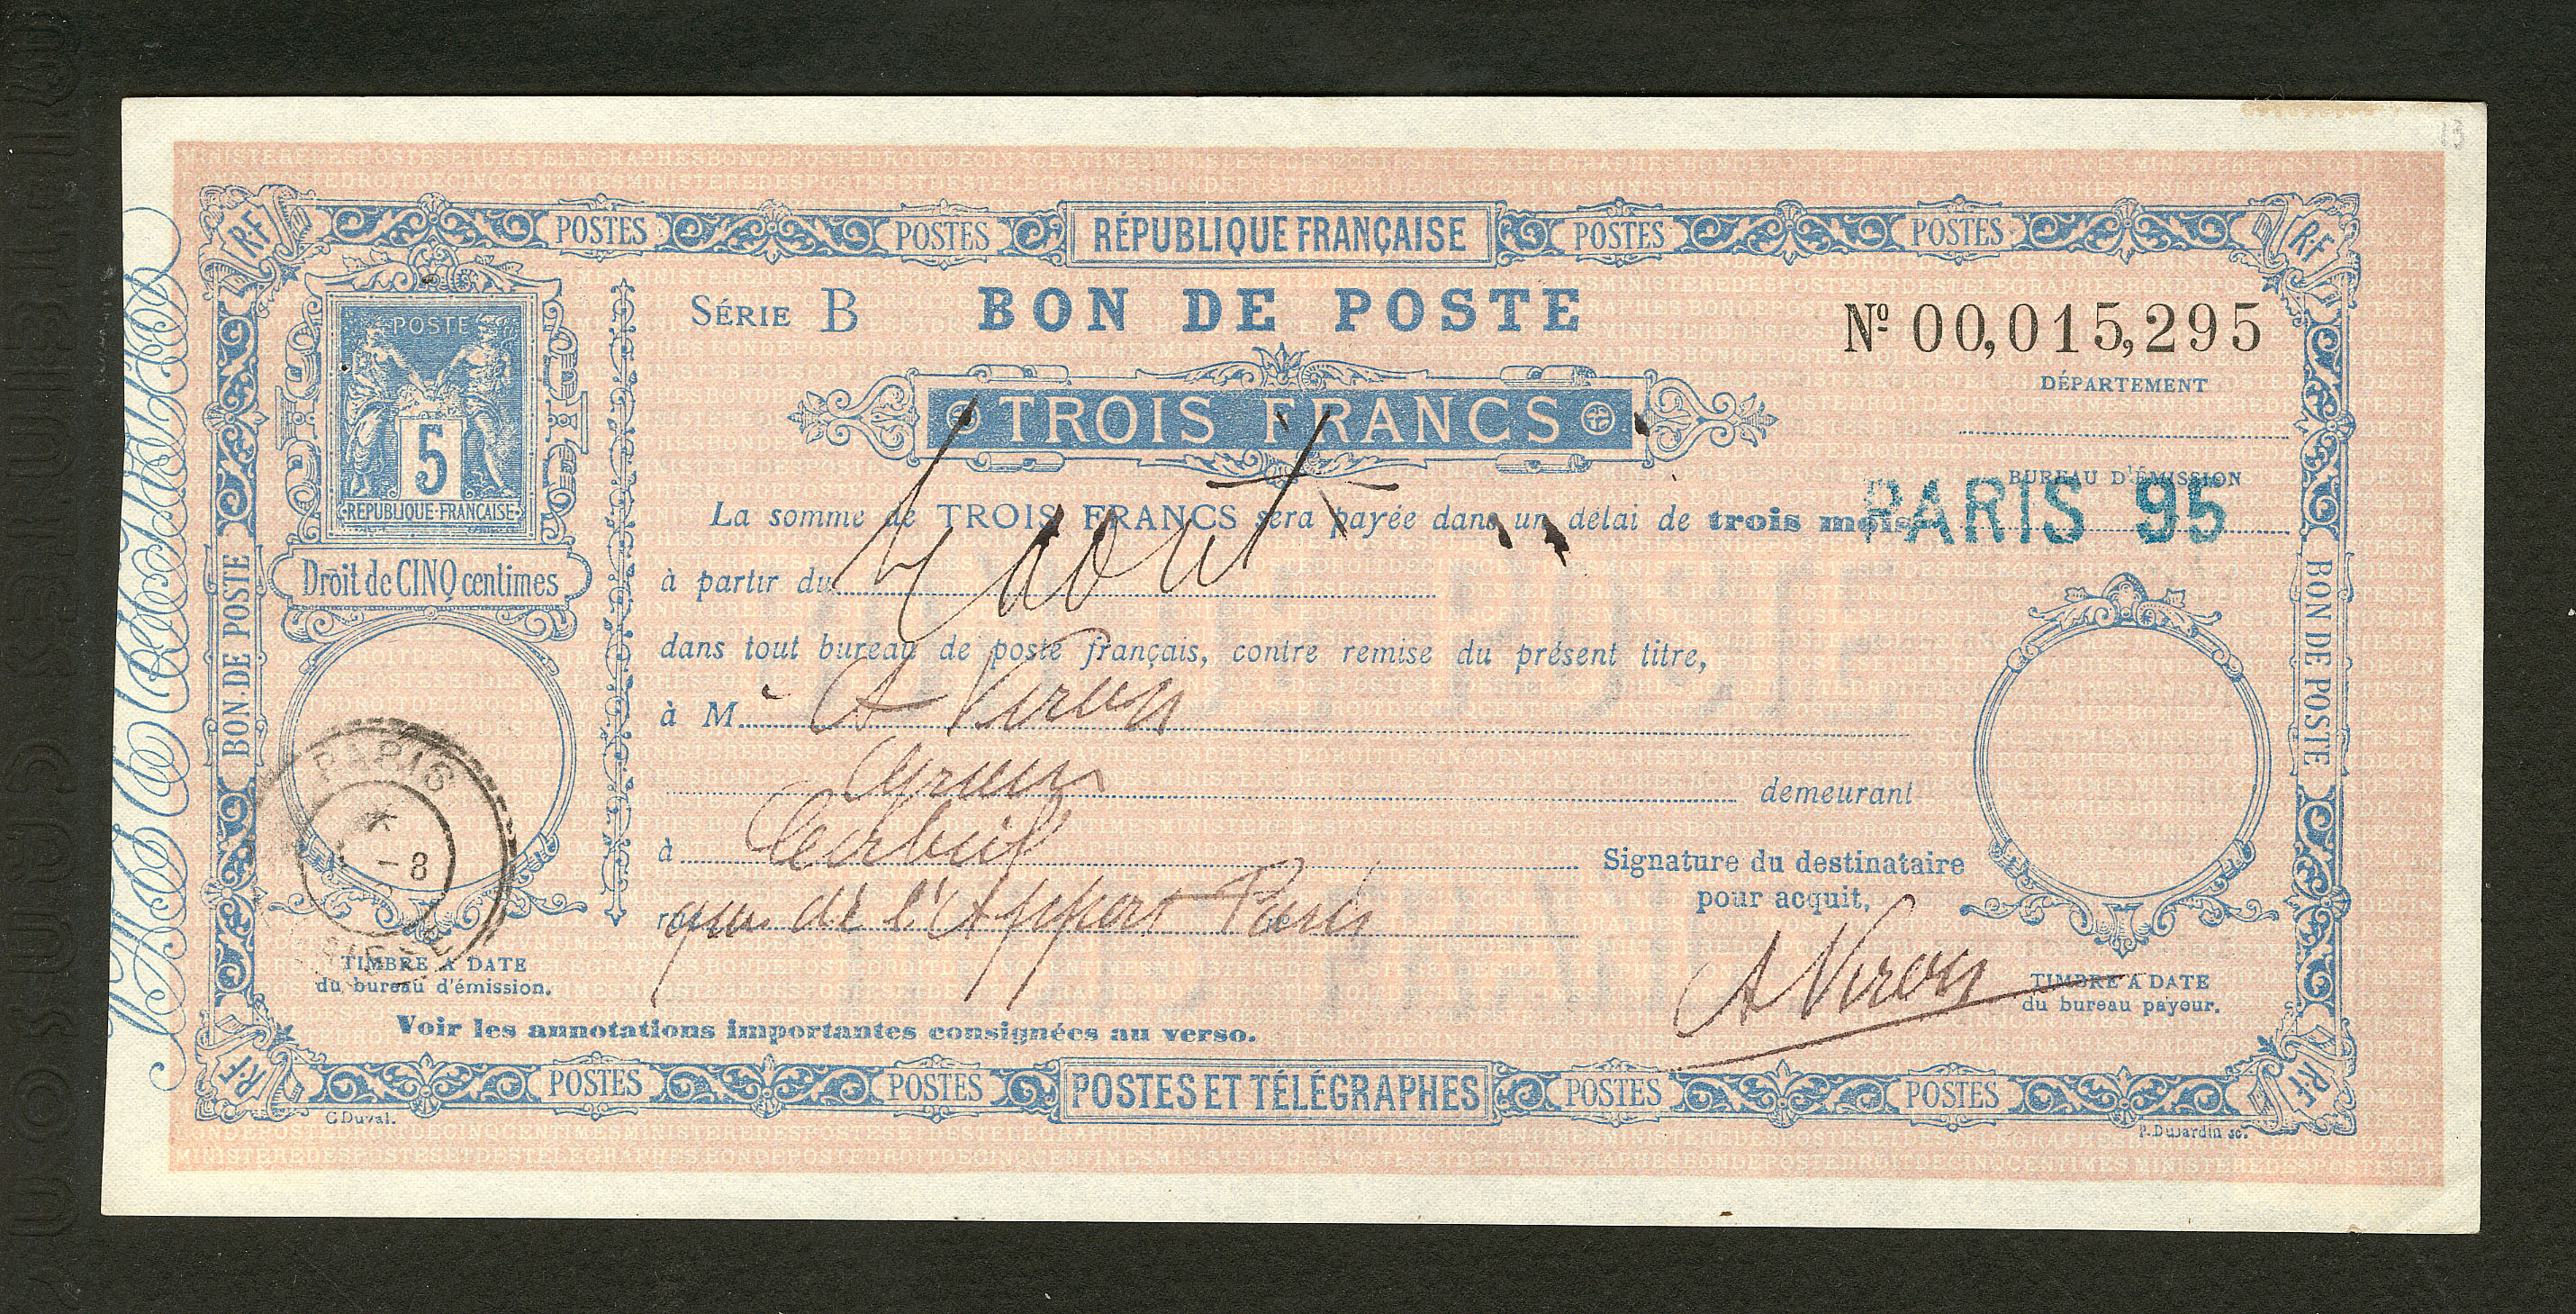 POSTES POSTES RÉPUBLIQUE FRANÇAISE POSTES POSTES
R·F R·F
SÉRIE B BON DE POSTE Nº 00,015,295
POSTE
5
REPUBLIQUE·FRANÇAISE
Droit de CINQ centimes
TROIS FRANCS
DÉPARTEMENT
BUREAU D'ÉMISSION
PARIS 95
La somme de TROIS FRANCS sera payée dans un délai de trois mois
à partir du
dans tout bureau de poste français, contre remise du présent titre,
à M. A Viron
demeurant
à Corbeil
quai de l'Apport Paris
Signature du destinataire
pour acquit,
A Viron
BON DE POSTE
BON DE POSTE
PARIS
8
TIMBRE A DATE
du bureau d'émission.
TIMBRE A DATE
du bureau payeur.
Voir les annotations importantes consignées au verso.
R·F R·F
POSTES POSTES POSTES ET TÉLÉGRAPHES POSTES POSTES
C.Duval. P.Dujardin sc.